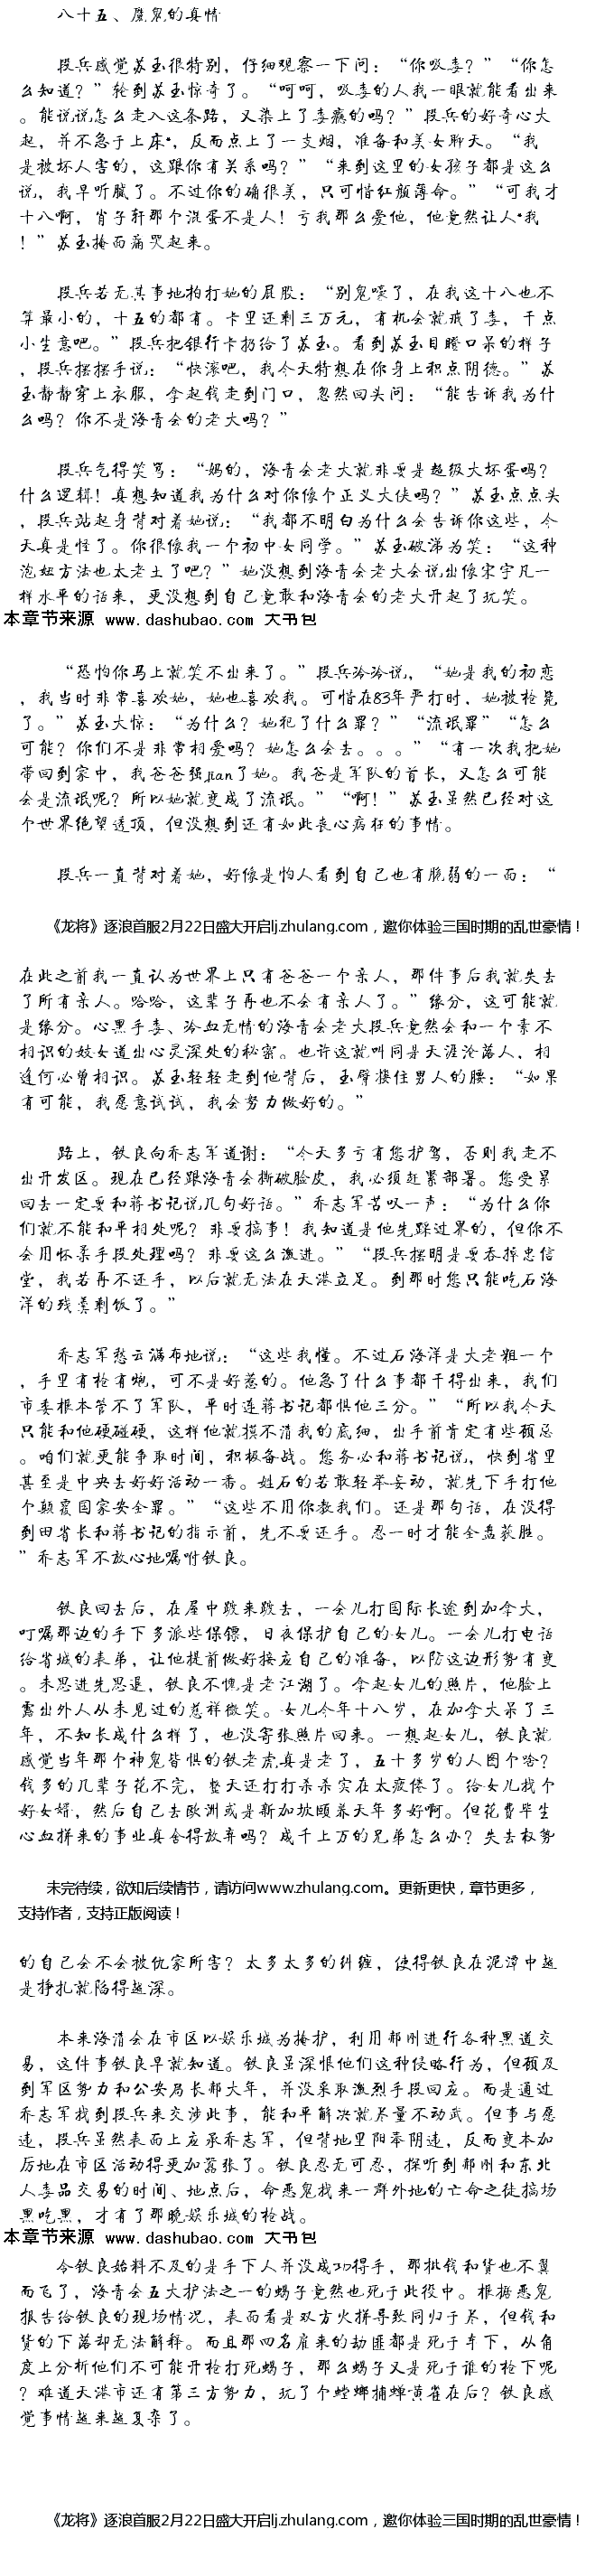 八十五、魔鬼的真情
段兵感觉苏玉很特别，仔细观察一下问：“你吸毒？”“你怎
么知道？”轮到苏玉惊奇了。“呵呵，吸毒的人我一眼就能看出来
。能说说怎么走入这条路，又染上了毒瘾的吗？”段兵的好奇心大
起，并不急于上床*，反而点上了一支烟，准备和美女聊天。“我
是被坏人害的，这跟你有关系吗？”“来到这里的女孩子都是这么
说，我早听腻了。不过你的确很美，只可惜红颜薄命。”“可我才
十八啊，肖子轩那个混蛋不是人！亏我那么爱他，他竟然让人*我
！”苏玉掩面痛哭起来。
段兵若无其事地拍打她的屁股：“别鬼嚎了，在我这十八也不
算最小的，十五的都有。卡里还剩三万元，有机会就戒了毒，干点
小生意吧。”段兵把银行卡扔给了苏玉。看到苏玉目瞪口呆的样子
，段兵摆摆手说：“快滚吧，我今天特想在你身上积点阴德。”苏
玉静静穿上衣服，拿起钱走到门口，忽然回头问：“能告诉我为什
么吗？你不是海青会的老大吗？”
段兵气得笑骂：“妈的，海青会老大就非要是超级大坏蛋吗？
什么逻辑！真想知道我为什么对你像个正义大侠吗？”苏玉点点头
，段兵站起身背对着她说：“我都不明白为什么会告诉你这些，今
天真是怪了。你很像我一个初中女同学。”苏玉破涕为笑：“这种
泡妞方法也太老土了吧？”她没想到海青会老大会说出像宋宇凡一
样水平的话来，更没想到自己竟敢和海青会的老大开起了玩笑。
本章节来源 www.dashubao.com 大书包
“恐怕你马上就笑不出来了。”段兵冷冷说，“她是我的初恋
，我当时非常喜欢她，她也喜欢我。可惜在83年严打时，她被枪毙
了。”苏玉大惊：“为什么？她犯了什么罪？”“流氓罪”“怎么
可能？你们不是非常相爱吗？她怎么会去。。。”“有一次我把她
带回到家中，我爸爸强jian了她。我爸是军队的首长，又怎么可能
会是流氓呢？所以她就变成了流氓。”“啊！”苏玉虽然已经对这
个世界绝望透顶，但没想到还有如此丧心病狂的事情。
段兵一直背对着她，好像是怕人看到自己也有脆弱的一面：“
《龙将》逐浪首服2月22日盛大开启lj.zhulang.com，邀你体验三国时期的乱世豪情！
在此之前我一直认为世界上只有爸爸一个亲人，那件事后我就失去
了所有亲人。哈哈，这辈子再也不会有亲人了。”缘分，这可能就
是缘分。心黑手毒、冷血无情的海青会老大段兵竟然会和一个素不
相识的妓女道出心灵深处的秘密。也许这就叫同是天涯沦落人，相
逢何必曾相识。苏玉轻轻走到他背后，玉臂搂住男人的腰：“如果
有可能，我愿意试试，我会努力做好的。”
路上，铁良向乔志军道谢：“今天多亏有您护驾，否则我走不
出开发区。现在已经跟海青会撕破脸皮，我必须赶紧部署。您受累
回去一定要和蒋书记说几句好话。”乔志军苦叹一声：“为什么你
们就不能和平相处呢？非要搞事！我知道是他先踩过界的，但你不
会用怀柔手段处理吗？非要这么激进。”“段兵摆明是要吞掉忠信
堂，我若再不还手，以后就无法在天港立足。到那时您只能吃石海
洋的残羹剩饭了。”
乔志军愁云满布地说：“这些我懂。不过石海洋是大老粗一个
，手里有枪有炮，可不是好惹的。他急了什么事都干得出来，我们
市委根本管不了军队，平时连蒋书记都惧他三分。”“所以我今天
只能和他硬碰硬，这样他就摸不清我的底细，出手前肯定有些顾忌
。咱们就更能争取时间，积极备战。您务必和蒋书记说，快到省里
甚至是中央去好好活动一番。姓石的若敢轻举妄动，就先下手打他
个颠覆国家安全罪。”“这些不用你教我们。还是那句话，在没得
到田省长和蒋书记的指示前，先不要还手。忍一时才能全盘获胜。
”乔志军不放心地嘱咐铁良。
铁良回去后，在屋中踱来踱去，一会儿打国际长途到加拿大，
叮嘱那边的手下多派些保镖，日夜保护自己的女儿。一会儿打电话
给省城的表弟，让他提前做好接应自己的准备，以防这边形势有变
。未思进先思退，铁良不愧是老江湖了。拿起女儿的照片，他脸上
露出外人从未见过的慈祥微笑。女儿今年十八岁，在加拿大呆了三
年，不知长成什么样了，也没寄张照片回来。一想起女儿，铁良就
感觉当年那个神鬼皆惧的铁老虎真是老了，五十多岁的人图个啥？
钱多的几辈子花不完，整天还打打杀杀实在太疲倦了。给女儿找个
好女婿，然后自己去欧洲或是新加坡颐养天年多好啊。但花费毕生
心血拼来的事业真舍得放弃吗？成千上万的兄弟怎么办？失去权势
未完待续，欲知后续情节，请访问www.zhulang.com。更新更快，章节更多，
支持作者，支持正版阅读！
的自己会不会被仇家所害？太多太多的纠缠，使得铁良在泥潭中越
是挣扎就陷得越深。
本来海清会在市区以娱乐城为掩护，利用郝刚进行各种黑道交
易，这件事铁良早就知道。铁良虽深恨他们这种侵略行为，但顾及
到军区势力和公安局长郝大年，并没采取激烈手段回应。而是通过
乔志军找到段兵来交涉此事，能和平解决就尽量不动武。但事与愿
违，段兵虽然表面上应承乔志军，但背地里阳奉阴违，反而变本加
厉地在市区活动得更加嚣张了。铁良忍无可忍，探听到郝刚和东北
人毒品交易的时间、地点后，命恶鬼找来一群外地的亡命之徒搞场
黑吃黑，才有了那晚娱乐城的枪战。
本章节来源 www.dashubao.com 大书包
令铁良始料不及的是手下人并没成功得手，那批钱和货也不翼
而飞了，海青会五大护法之一的蝎子竟然也死于此役中。根据恶鬼
报告给铁良的现场情况，表面看是双方火拼导致同归于尽，但钱和
货的下落却无法解释。而且那四名雇来的劫匪都是死于车下，从角
度上分析他们不可能开枪打死蝎子，那么蝎子又是死于谁的枪下呢
？难道天港市还有第三方势力，玩了个螳螂捕蝉黄雀在后？铁良感
觉事情越来越复杂了。
《龙将》逐浪首服2月22日盛大开启lj.zhulang.com，邀你体验三国时期的乱世豪情！